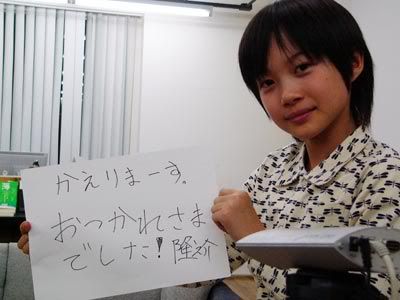 かえりまーす。
おつかれさま
でした! 隆介